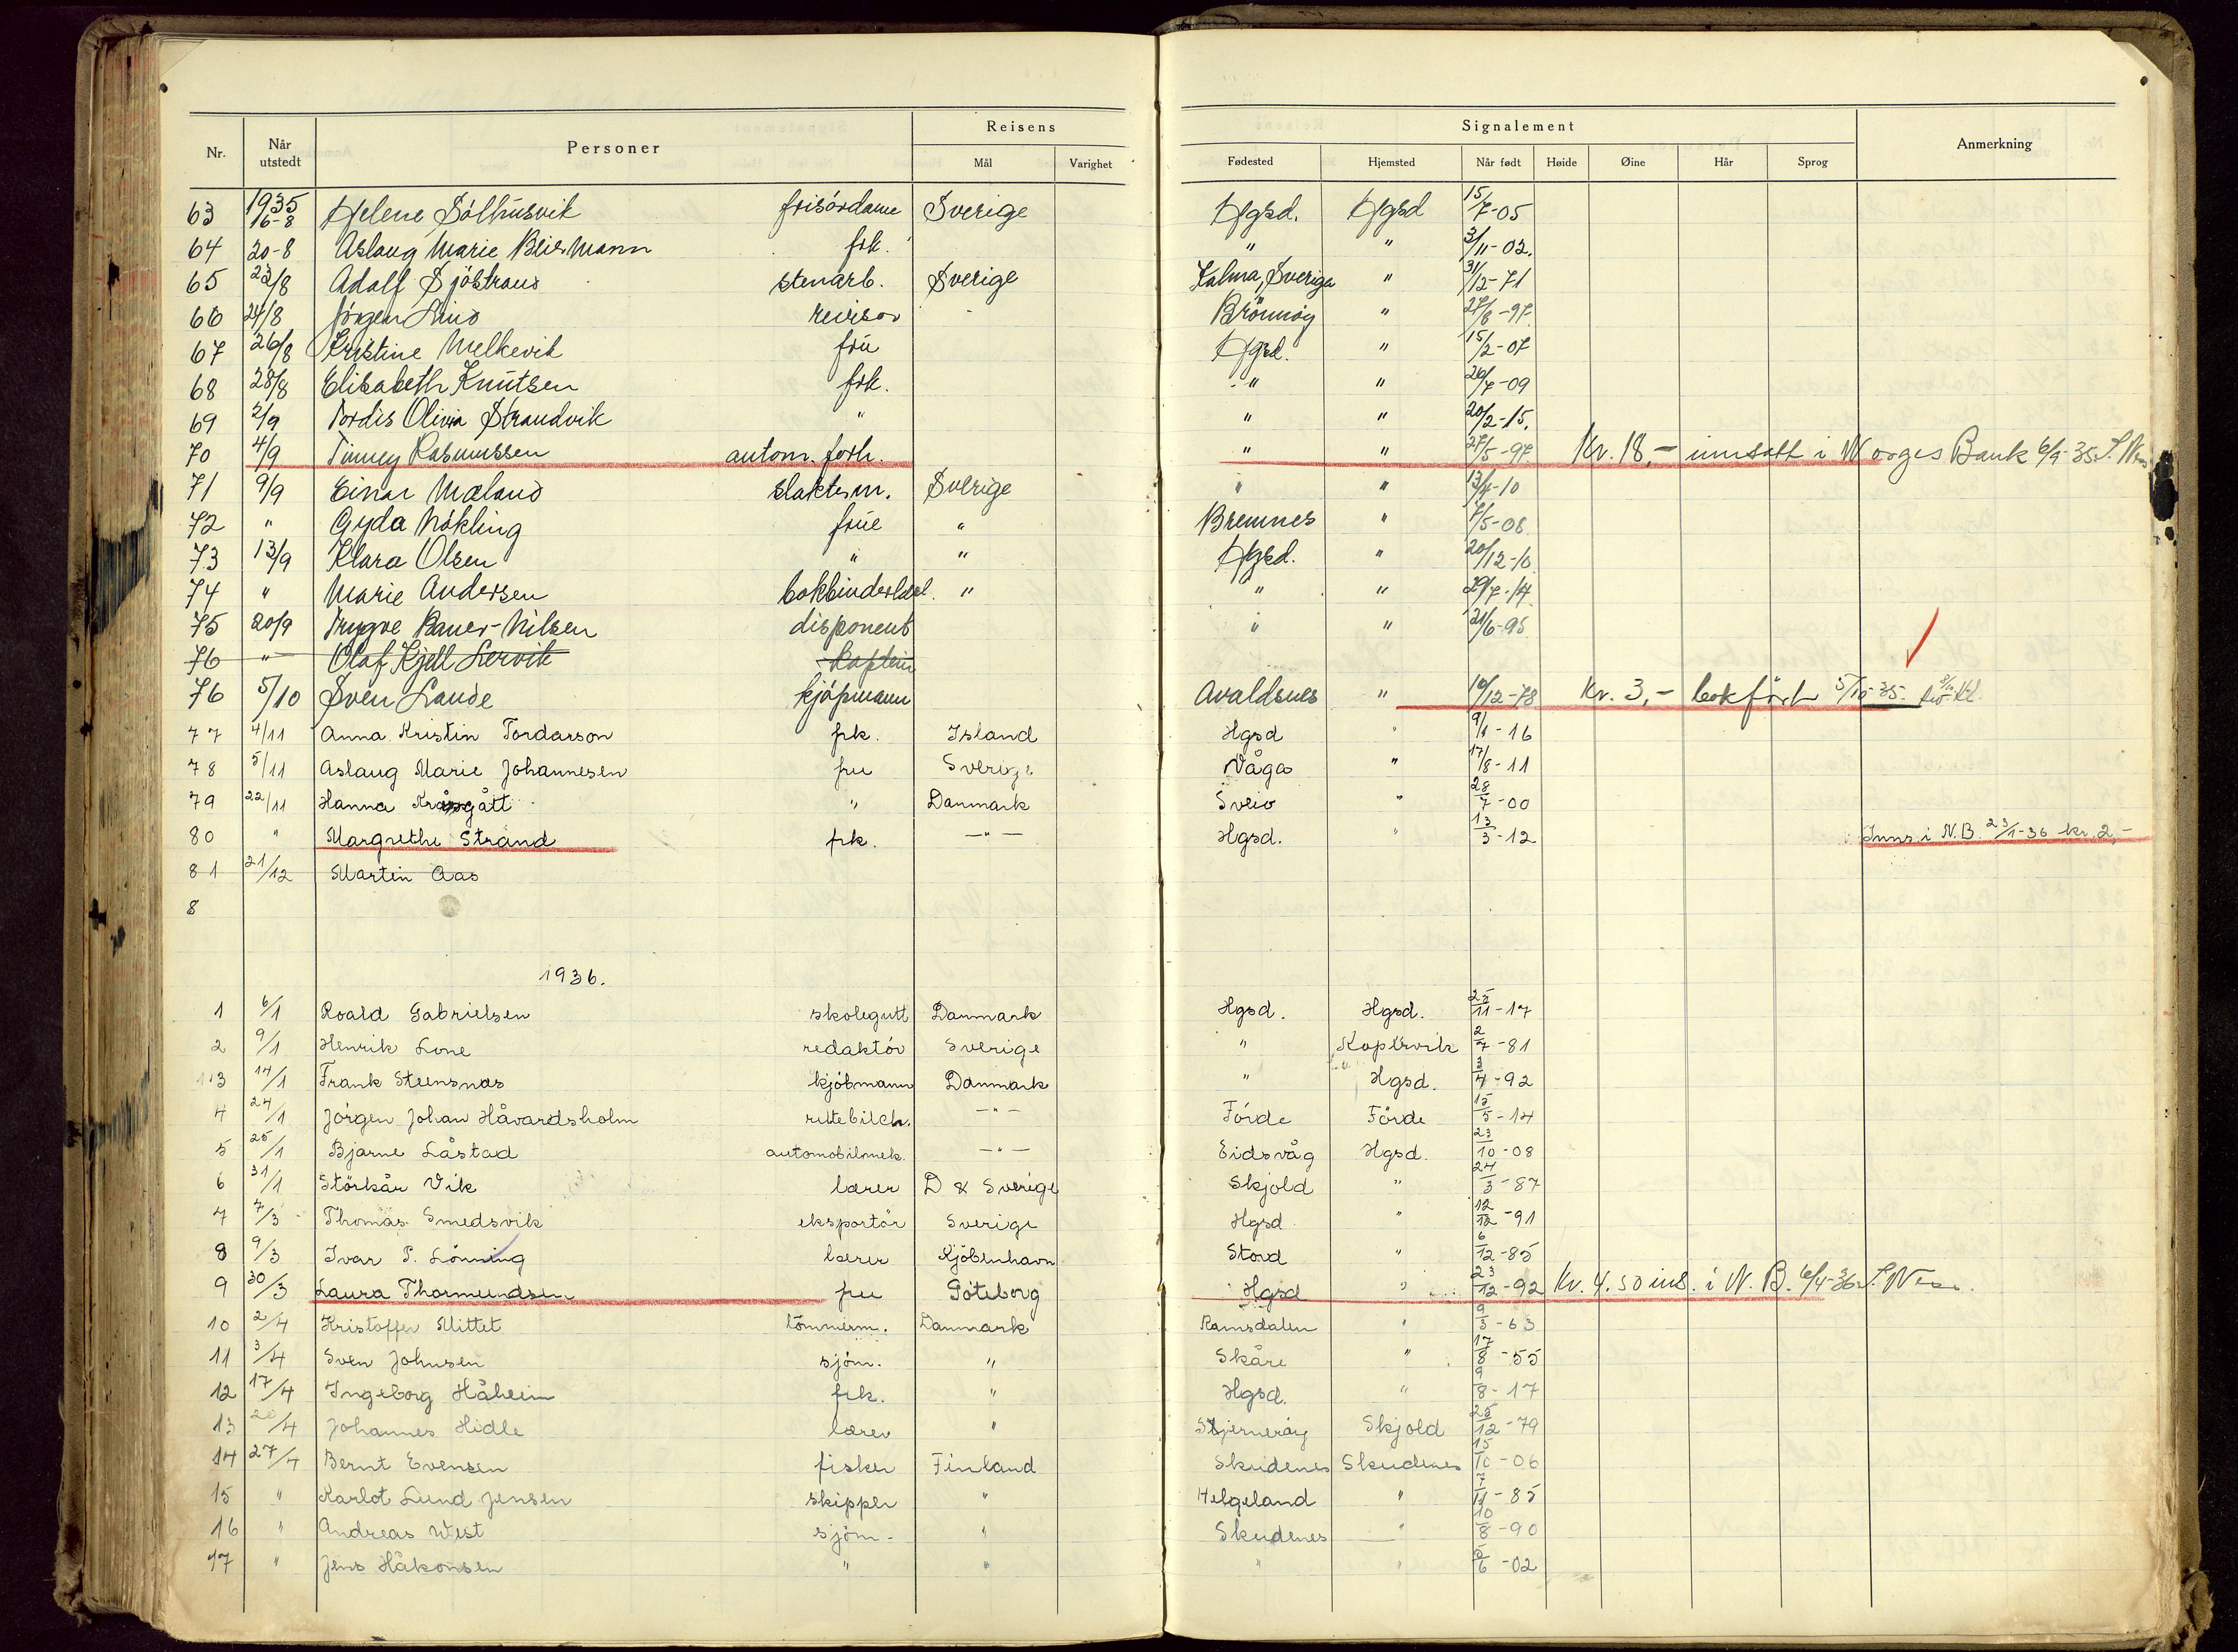 Nr. Når utstedt Personer Reisens Mål Varighet Signalement Fødested Hjemsted Når født Høide Øine Hår Sprog Anmerkning
63 1935 16-8 Helene Sölhusvik frisördame Sverige Hgsd. Hgsd 15/7-05
64 20-8 Aslaug Marie frk. " " 3/11-02.
65 23/8 Adolf stenarb. Sverige Kalma, Sverige " 31/12-71
66 24/8 Jörgen Lind revisor Brönnöy " 27/8-97
67 26/8 Kristine Melkevik fru Hgsd. " 15/2-07
68 28/8 Elisabeth Knutsen frk. " " 26/7-09
69 2/9 Tordis Olivia Strandvik " " " 20/2-15.
70 4/9 Rasmussen autom. forh. " " 27/5-97 Kr. 18,- innsatt i Norges Bank 6/9-35
71 9/9 Einar Mæland slakterm. Sverige " " 13/4-10
72 " Gyda Nökling frue " Bremnes " 7/5-08
73 13/9 Klara Olsen " " Hgsd. " 20/12-10
74 " Marie Andersen " " " 29/7-14
75 20/9 Trygve Bauer-Nilsen disponent " " 21/6-95
76 " Olaf Kjell Lervik Kaptein
76 5/10 Sven Lande kjöpmann Avaldsnes " 10/12-78 Kr. 3,- bokfört 5/10-35.
77 4/11 Anna Kristin Tordarson frk. Island Hgsd " 9/1-16
78 5/11 Aslaug Marie Johannesen fru Sverige Våga " 17/8-11
79 22/11 Hanna " Danmark Sveio " 28/7-00
80 " Margrethe Strand frk. -"- Hgsd. " 13/3-12 Inns. i N.B. 23/1-36 kr. 2,-
81 21/12 Martin Aas
8
1936.
1 6/1 Roald Gabrielsen skolegutt Danmark Hgsd. Hgsd. 25/11-17
2 9/1 Henrik Lone redaktör Sverige " Kopervik 2/7-81
3 14/1 Frank Steensnæs kjöbmann Danmark " Hgsd. 3/4-92
4 24/1 Jörgen Johan Håvardsholm -"- Förde Förde 15/5-14
5 25/1 Bjarne Låstad automobilmek. -"- Eidsvåg Hgsd. 23/10-08
6 31/1 Störkår Vik lærer D & Sverige Skjold " 24/3-87
7 7/3 Thomas Smedsvik eksportör Sverige Hgsd " 12/12-91
8 9/3 Ivar P. Lönning lærer Kjöbenhavn Stord " 6/12-85
9 30/3 Laura Thormundsen fru Göteborg Hgsd " 23/12-92 Kr. 4.50 ins. i N.B. 6/4-36
10 2/4 Kristoffer Mittet tömmerm. Danmark Ramsdalen " 9/5-63
11 3/4 Sven Johnsen sjöm. " Skåre " 17/8-55
12 17/4 Ingeborg Håheim frk. " Hgsd. " 9/8-17
13 20/4 Johannes Hidle lærer " Skjold 25/12-79
14 27/4 Bernt Evensen fisker Finland Skudenes Skudenes 15/10-06
15 " Karlot Lund Jensen skipper " Helgeland " 7/11-85
16 " Andreas West sjöm. " Skudenes " 10/8-90
17 " Jens Håkonsen " " " " 5/6-02